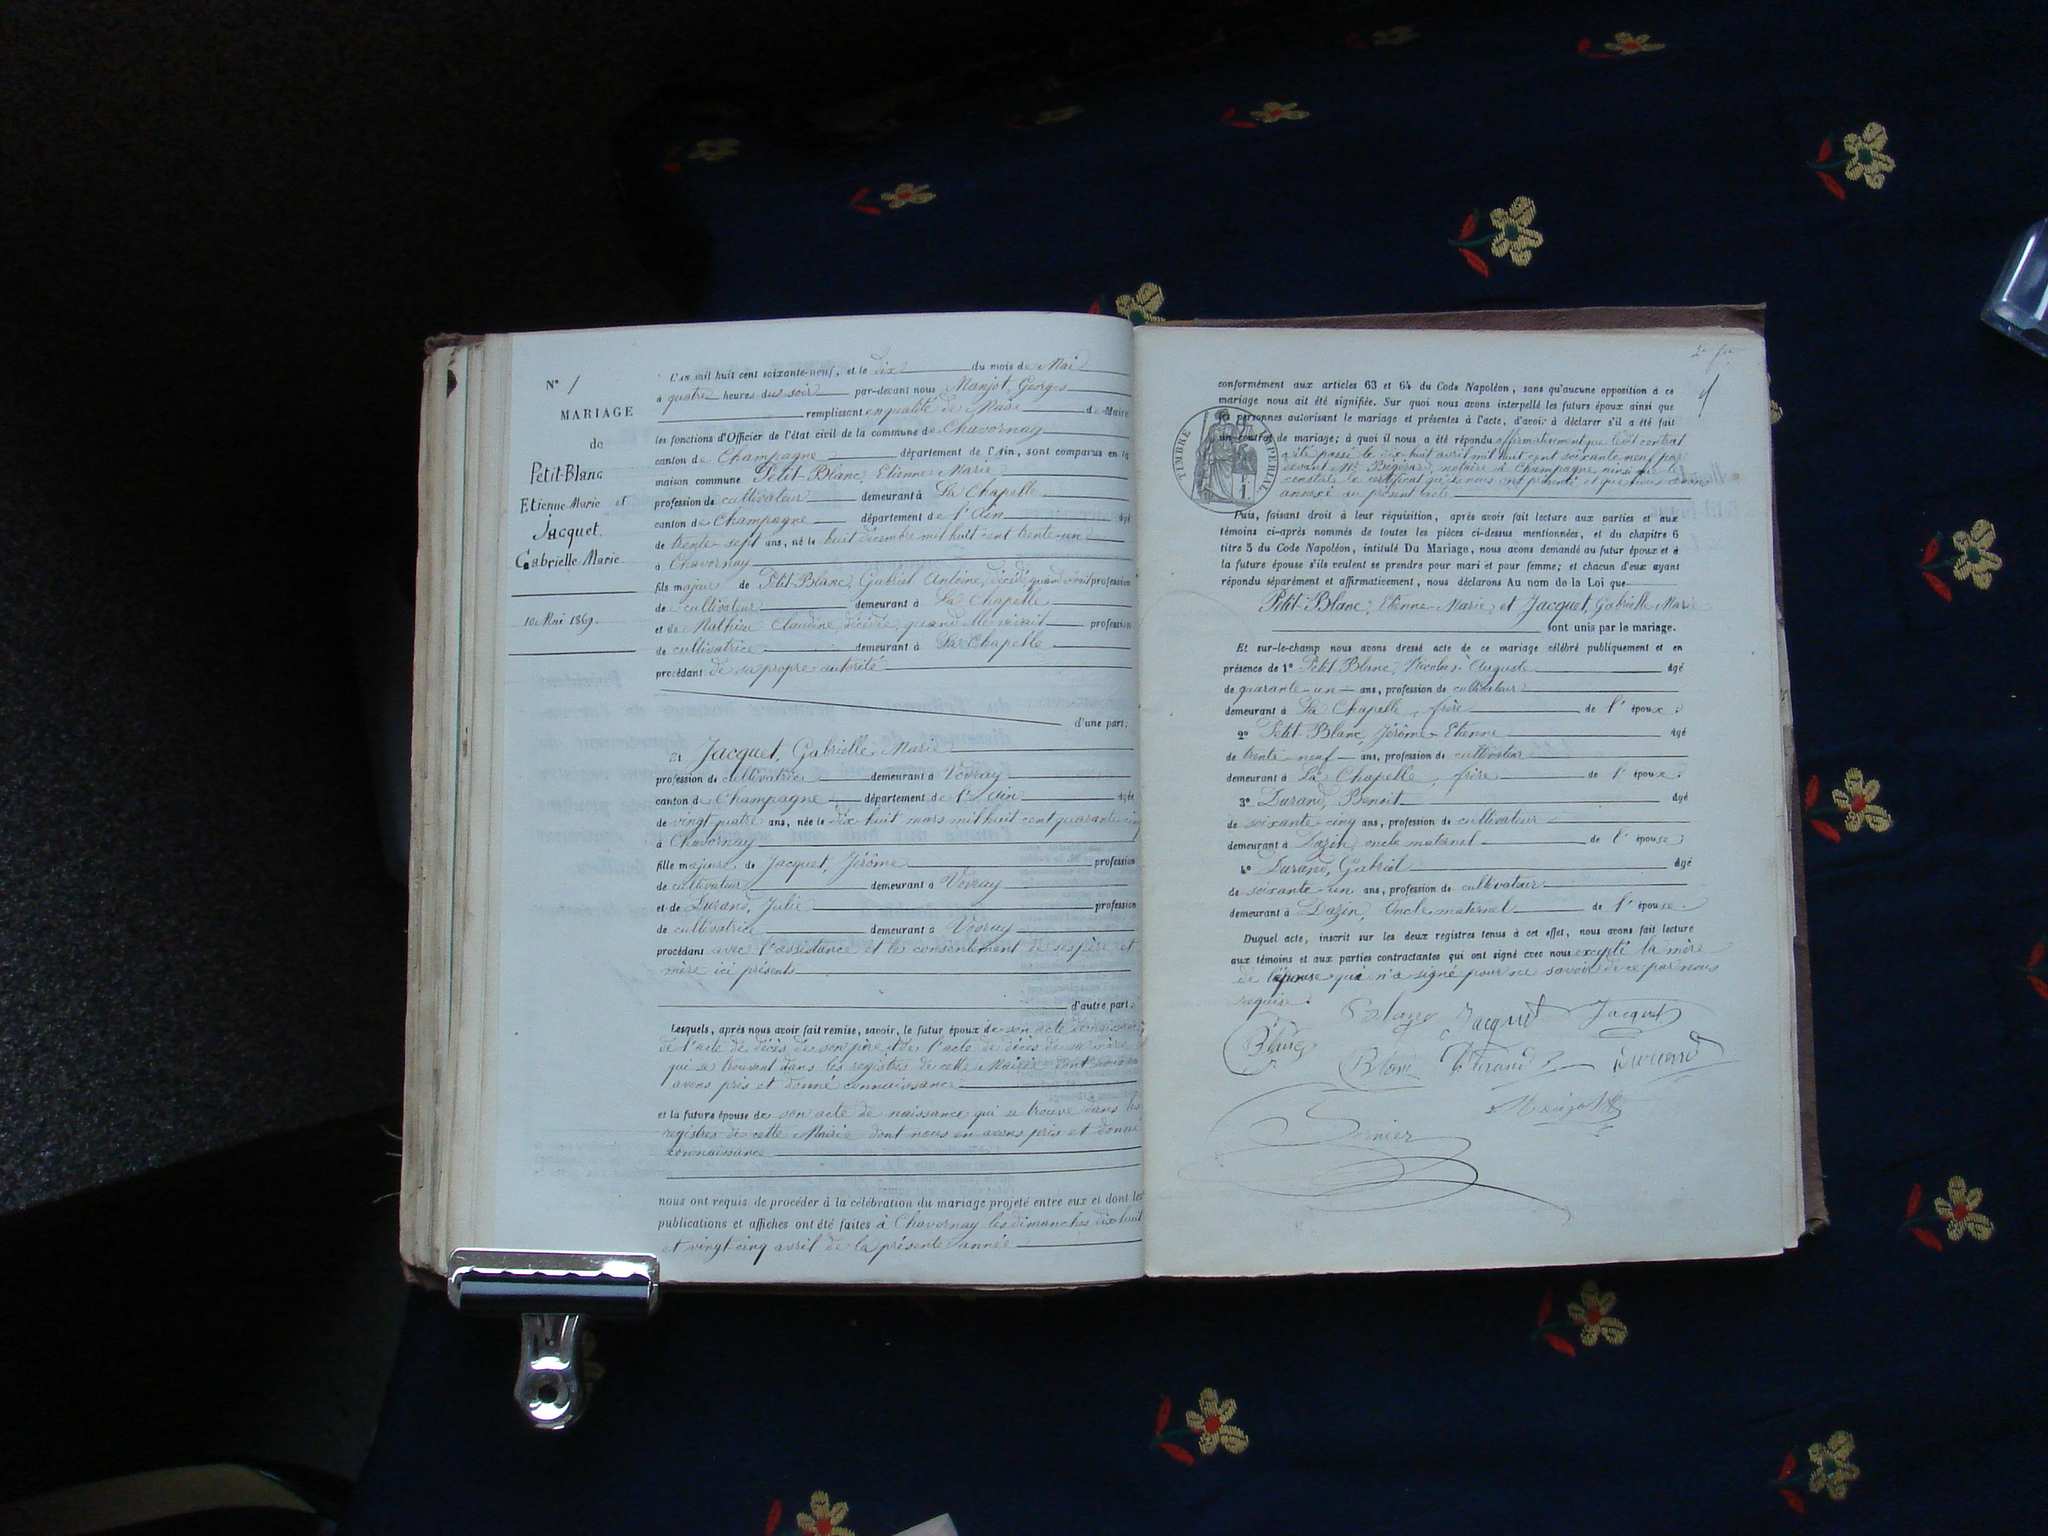 N° 1
MARIAGE
de
Petit-Blanc
Etienne Marie et
Jacquet
Gabrielle Marie
10 Mai 1869.
L'an mil huit cent soixante-neuf, et le dix du mois de Mai
à quatre heures du soir par-devant nous Manjot, Georges
remplissant en qualité de Maire de Maire
les fonctions d'Officier de l'état civil de la commune de Chavornay
canton de Champagne département de l'Ain, sont comparus en la
maison commune Petit-Blanc, Etienne Marie
profession de cultivateur demeurant à La Chapelle
canton de Champagne département de l'Ain âgé
de trente-sept ans, né le huit décembre mil huit cent trente-un
à Chavornay
fils majeur de Petit-Blanc, Gabriel Antoine, décédé, quand vivait profession
de cultivateur demeurant à La Chapelle
et de Mathieu Claudine, décédée, quand elle vivait profession
de cultivatrice demeurant à La Chapelle
procédant de sa propre autorité
d'une part;
et Jacquet, Gabrielle Marie
profession de cultivatrice demeurant à Vovray
canton de Champagne département de l'Ain âgée
de vingt quatre ans, née le dix huit mars mil huit cent quarante-cinq
à Chavornay
fille majeure de Jacquet, Jérôme profession
de cultivateur demeurant à Vovray
et de Durand, Julie profession
de cultivatrice demeurant à Vovray
procédant avec l'assistance et le consentement de ses père et
mère ici présents
d'autre part;
Lesquels, après nous avoir fait remise, savoir, le futur époux de son acte de naissance
de l'acte de décès de son père et de l'acte de décès de sa mère
qui se trouvent dans les registres de cette Mairie dont nous en
avons pris et donné connaissance
et la future épouse de son acte de naissance qui se trouve dans les
registres de cette Mairie dont nous en avons pris et donné
connaissance
nous ont requis de procéder à la célébration du mariage projeté entre eux et dont les
publications et affiches ont été faites à Chavornay les dimanches dix huit
et vingt-cinq avril de la présente année
conformément aux articles 63 et 64 du Code Napoléon, sans qu'aucune opposition à ce
mariage nous ait été signifiée. Sur quoi nous avons interpellé les futurs époux ainsi que
les personnes autorisant le mariage et présentes à l'acte, d'avoir à déclarer s'il a été fait
un contrat de mariage; à quoi il nous a été répondu affirmativement que ledit contrat
a été passé le dix huit avril mil huit cent soixante neuf par
devant Me notaire à Champagne ainsi que le
constate le certificat qu'ils nous ont présenté et que nous avons
annexé au présent acte
TIMBRE IMPERIAL
1
Puis, faisant droit à leur réquisition, après avoir fait lecture aux parties et aux
témoins ci-après nommés de toutes les pièces ci-dessus mentionnées, et du chapitre 6
titre 5 du Code Napoléon, intitulé Du Mariage, nous avons demandé au futur époux et à
la future épouse s'ils veulent se prendre pour mari et pour femme; et chacun d'eux ayant
répondu séparément et affirmativement, nous déclarons Au nom de la Loi que
Petit-Blanc, Etienne Marie, et Jacquet, Gabrielle Marie
sont unis par le mariage.
Et sur-le-champ nous avons dressé acte de ce mariage célébré publiquement et en
présence de 1° Petit Blanc, Nicolas Auguste âgé
de quarante-un ans, profession de cultivateur
demeurant à La Chapelle, frère de l'époux;
2° Petit Blanc, Jérôme Etienne âgé
de trente neuf ans, profession de cultivateur
demeurant à La Chapelle, frère de l'époux;
3° Durand, Benoit âgé
de soixante-cinq ans, profession de cultivateur
demeurant à Dazin, oncle maternel de l'épouse;
4° Durand, Gabriel âgé
de soixante-un ans, profession de cultivateur
demeurant à Dazin, Oncle maternel de l'épouse.
Duquel acte, inscrit sur les deux registres tenus à cet effet, nous avons fait lecture
aux témoins et aux parties contractantes qui ont signé avec nous excepté la mère
de l'épouse qui n'a signé pour ne savoir de ce par nous
requise.
Jacquet Jacquet
Blanc Blanc Durand Durand
Manjot